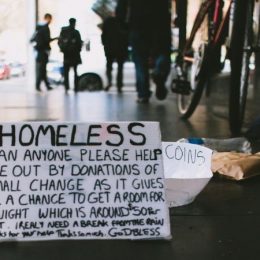 HOMELESS
CAN ANYONE PLEASE HELP
ME OUT BY DONATIONS OF
SMALL CHANGE AS IT GIVES
A CHANCE TO GET A ROOM FOR
NIGHT WHICH IS AROUND
I REALY NEED A BREAK FROM THE RAIN
for your help Thanks so much. GOD BLESS
COINS